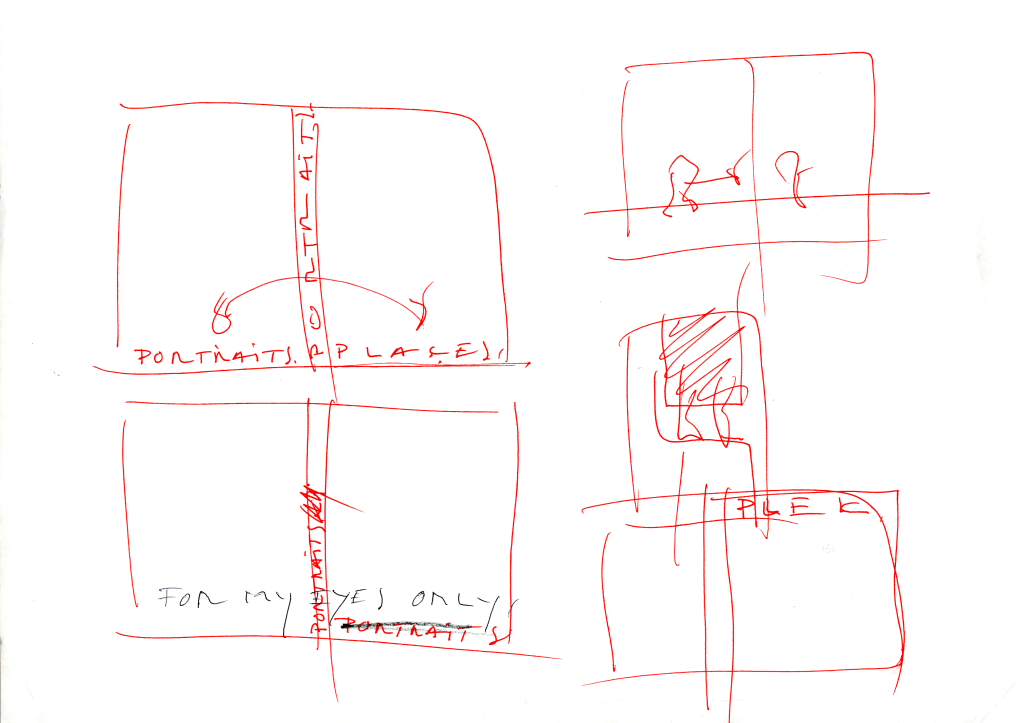 PORTRAITS
PORTRAITS. PLACES.
PORTRAITS
FOR MY EYES ONLY
PORTRAITS
PLEK